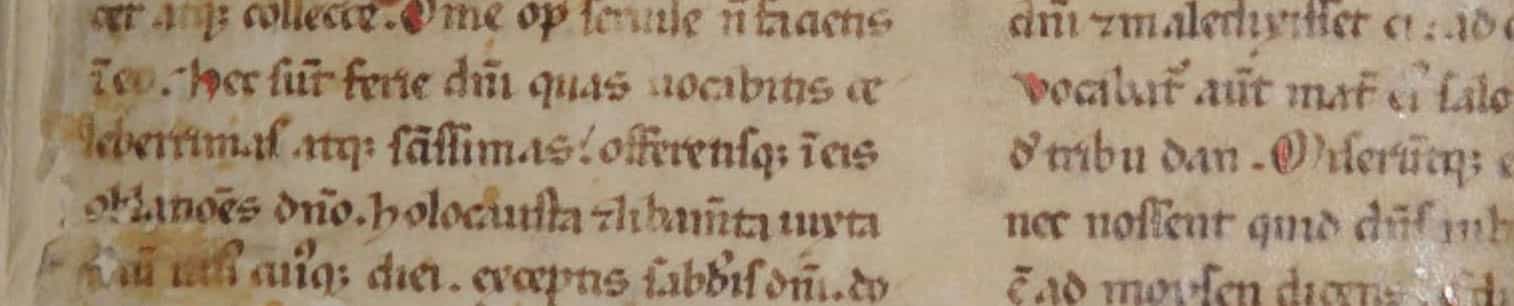 cet atq; collecte. Om̄e op̄ seruile n̄ facietis
ī eo. hec sūt ferie dn̄i quas uocabitis ce
leberrimas atq; sc̄issimas! offerensq; ī eis
oblatioēs dn̄o. holocausta ⁊ libam̄ta iuxta
cuiq; diei. exceptis sabb̄is dn̄i. do
dn̄i ⁊ maledixisset ei: ad
Vocabat᷑ aūt mat̄ ei᷒ salo
đ tribu dan. Miserūtq;
nec nossent quid dn̄s iub
ē ad moysen dicens